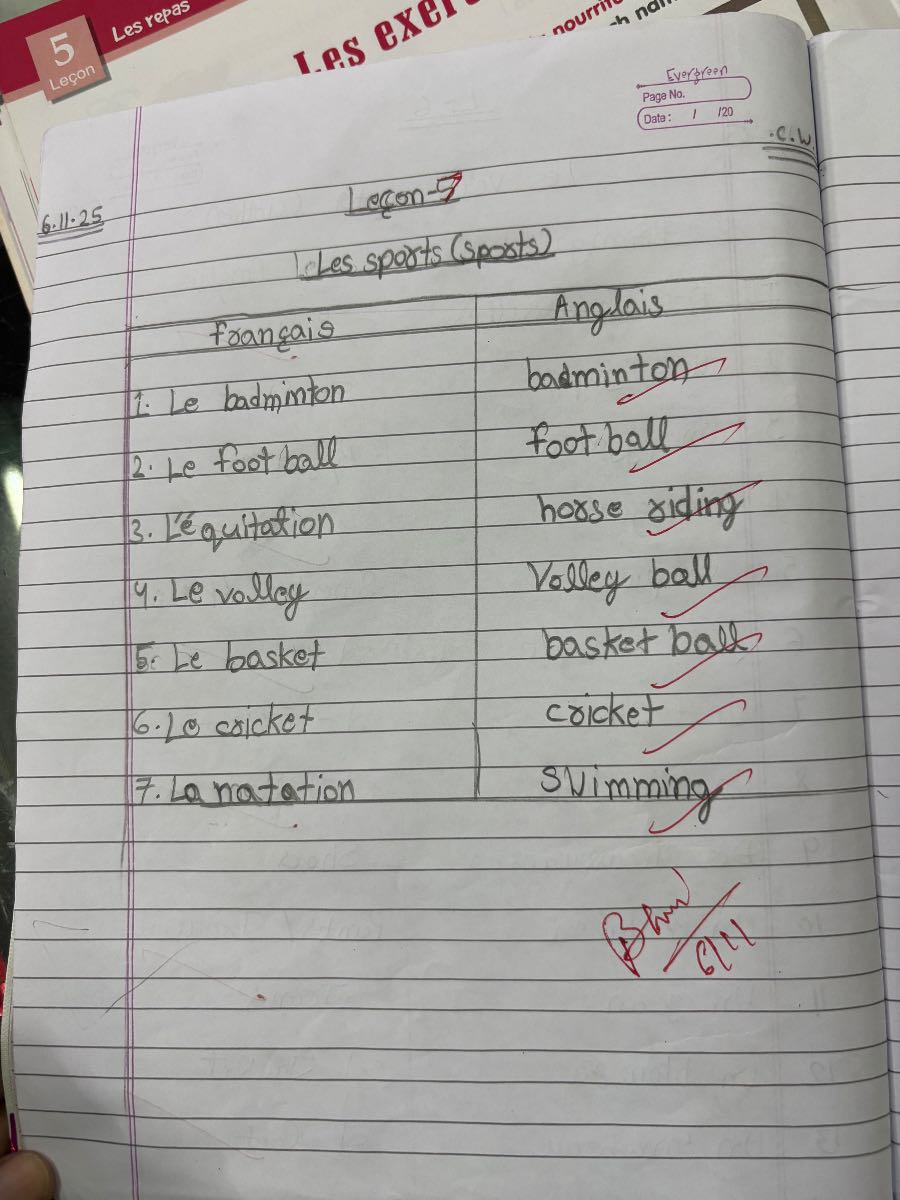 5
Leçon
Les repas
Les exer
nourrit
Evergreen
Page No.
Date: / /20
C.W.
6.11.25
Leçon-7
Les sports (sports)
français Anglais
1. Le badminton badminton
2. Le foot ball foot ball
3. L'équitation horse riding
4. Le volley Volley ball
5. Le basket basket ball
6. Le cricket cricket
7. La natation SWimming
6/11